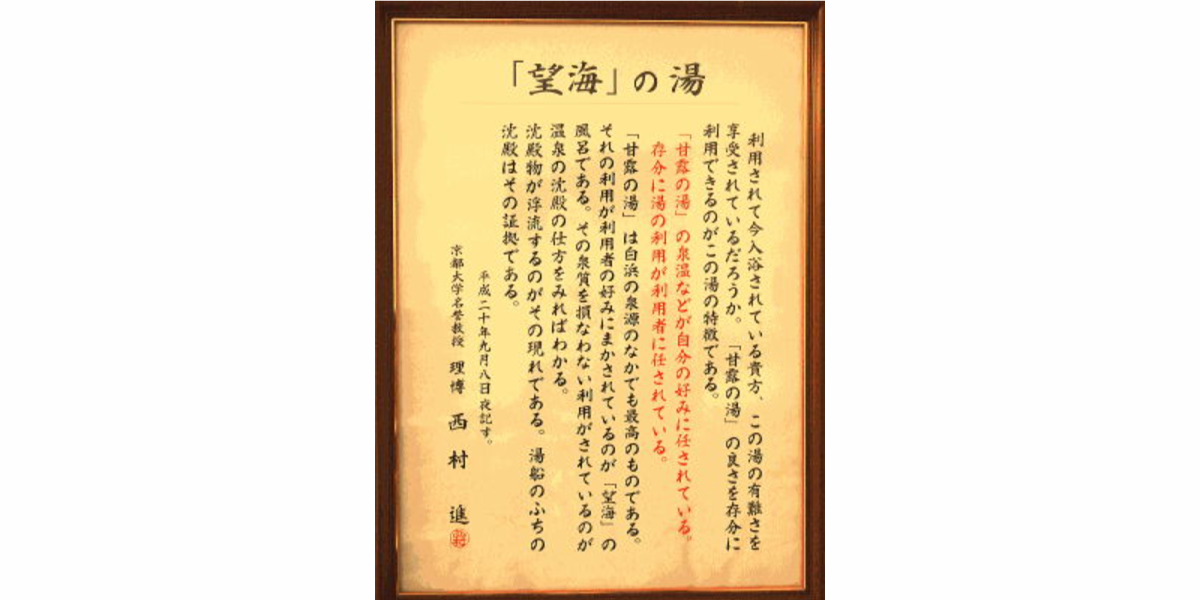 「望海」の湯
利用されて今入浴されている貴方、この湯の有難さを
享受されているだろうか。「甘露の湯」の良さを存分に
利用できるのがこの湯の特徴である。
「甘露の湯」の泉温などが自分の好みに任されている。
存分に湯の利用が利用者に任されている。
「甘露の湯」は白浜の泉源のなかでも最高のものである。
それの利用が利用者の好みにまかされているのが「望海」の
風呂である。その泉質を損なわない利用がされているのが
温泉の沈殿の仕方をみればわかる。
沈殿物が浮流するのがその現れである。湯船のふちの
沈殿はその証拠である。
平成二十年九月八日 夜記す。
京都大学名誉教授 理博 西村 進